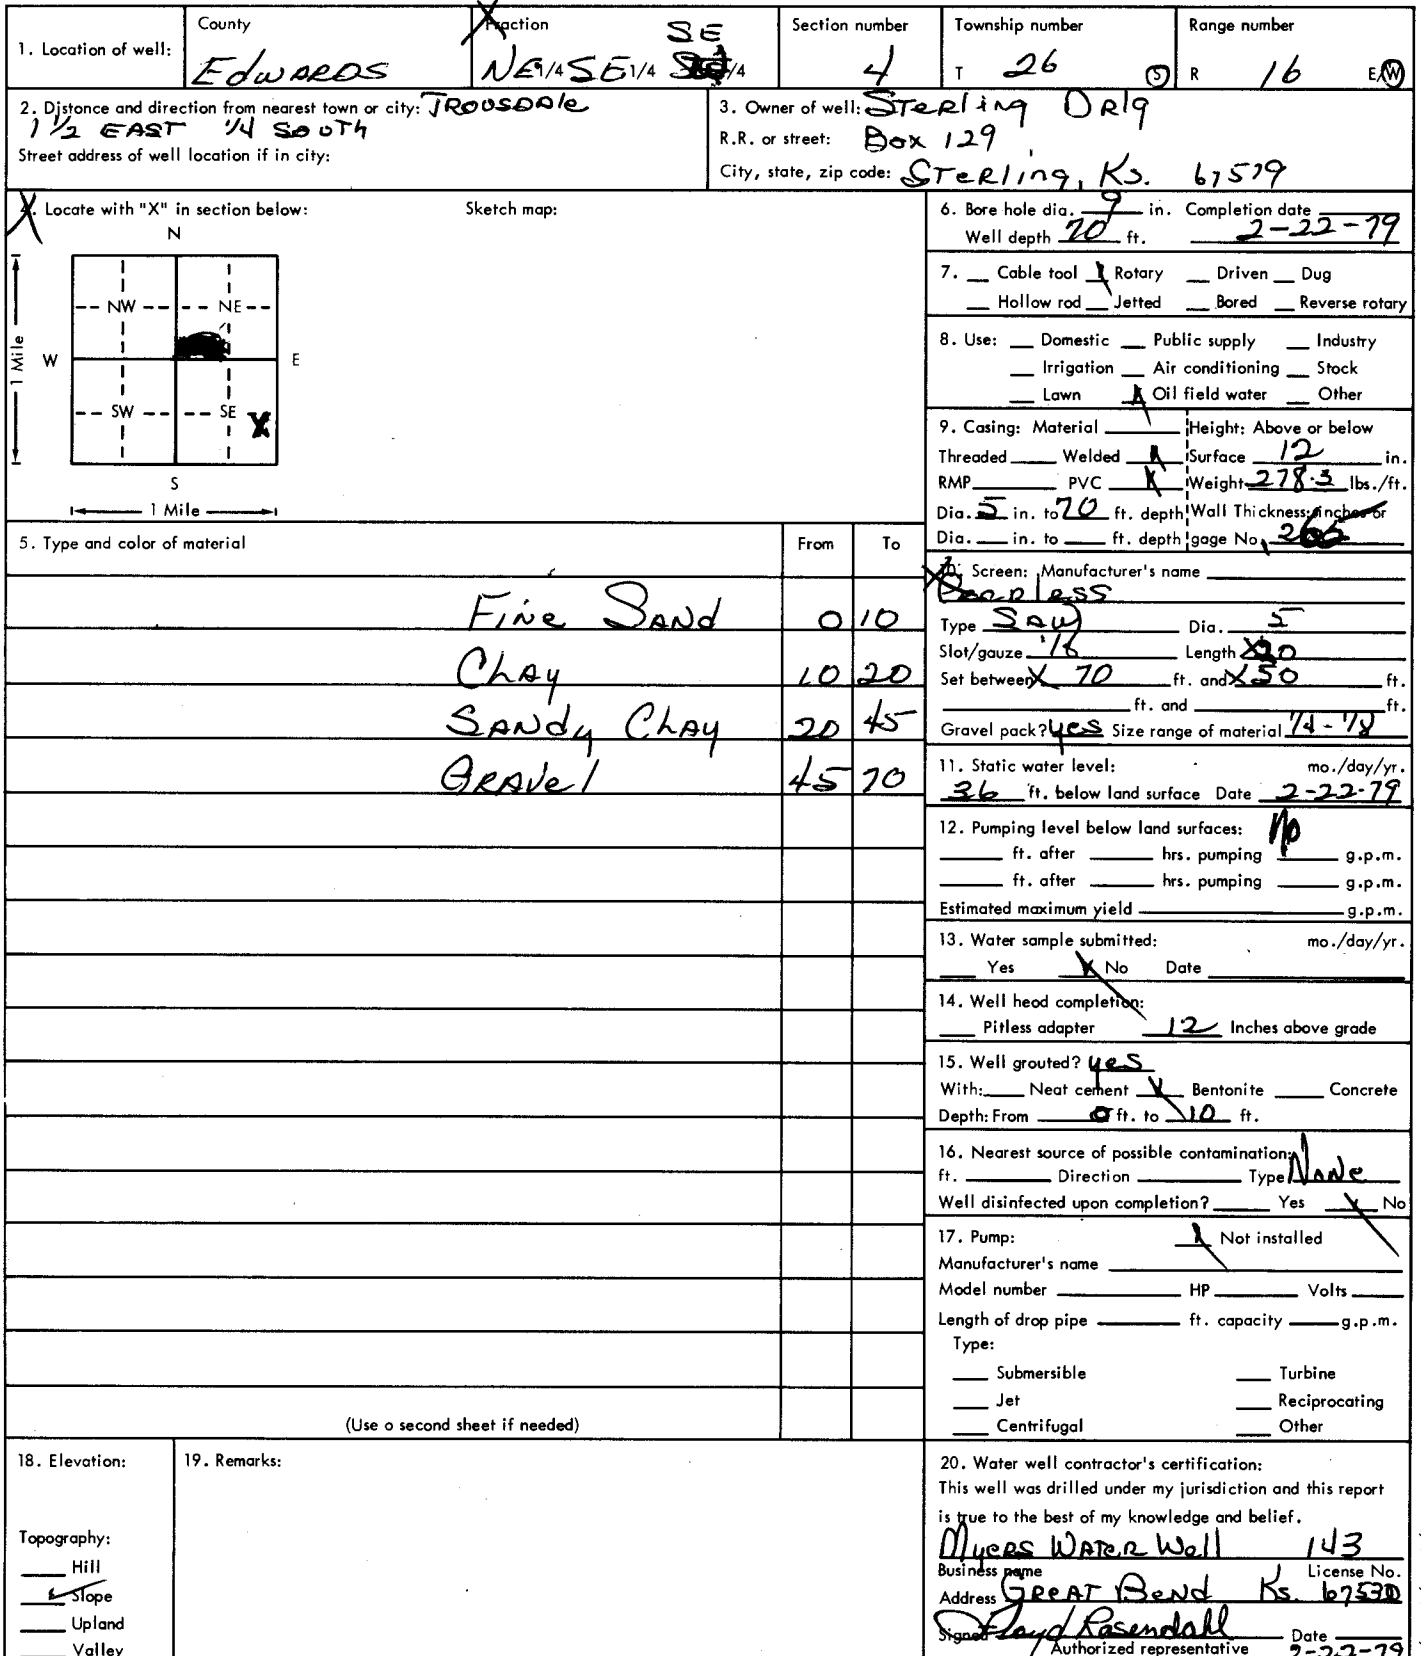 1. Location of well:
County
Edwards
Fraction
NE 1/4 SE 1/4 SE 1/4
Section number
4
Township number
T 26 S
Range number
R 16 E/W
2. Distance and direction from nearest town or city: Trousdale
1 1/2 EAST 1/4 South
Street address of well location if in city:
3. Owner of well: Sterling Drlg
R.R. or street: Box 129
City, state, zip code: Sterling, Ks. 67579
4. Locate with "X" in section below:
Sketch map:
N
NW NE
W E
1 Mile
SW SE X
S
1 Mile
5. Type and color of material From To
Fine Sand 0 10
Clay 10 20
Sandy Clay 20 45
Gravel 45 70
(Use a second sheet if needed)
6. Bore hole dia. 9 in. Completion date
Well depth 70 ft. 2-22-79
7. Cable tool X Rotary Driven Dug
Hollow rod Jetted Bored Reverse rotary
8. Use: Domestic Public supply Industry
Irrigation Air conditioning Stock
Lawn X Oil field water Other
9. Casing: Material Height: Above or below
Threaded Welded X Surface 12 in.
RMP PVC X Weight 278.3 lbs./ft.
Dia. 5 in. to 70 ft. depth Wall Thickness: inches or
Dia. in. to ft. depth gage No. 265
10. Screen: Manufacturer's name
Peerless
Type Saw Dia. 5
Slot/gauze 1/8 Length 20
Set between 70 ft. and 50 ft.
ft. and ft.
Gravel pack? yes Size range of material 1/4 - 1/8
11. Static water level: mo./day/yr.
36 ft. below land surface Date 2-22-79
12. Pumping level below land surfaces: No
ft. after hrs. pumping g.p.m.
ft. after hrs. pumping g.p.m.
Estimated maximum yield g.p.m.
13. Water sample submitted: mo./day/yr.
Yes X No Date
14. Well head completion:
Pitless adapter 12 Inches above grade
15. Well grouted? yes
With: Neat cement X Bentonite Concrete
Depth: From 0 ft. to 10 ft.
16. Nearest source of possible contamination:
ft. Direction Type None
Well disinfected upon completion? Yes X No
17. Pump: X Not installed
Manufacturer's name
Model number HP Volts
Length of drop pipe ft. capacity g.p.m.
Type:
Submersible Turbine
Jet Reciprocating
Centrifugal Other
18. Elevation:
Topography:
Hill
Slope
Upland
Valley
19. Remarks:
20. Water well contractor's certification:
This well was drilled under my jurisdiction and this report
is true to the best of my knowledge and belief.
Myers Water Well 143
Business name License No.
Address Great Bend Ks. 67530
Signed Floyd Rosendahl Date
Authorized representative 2-22-79